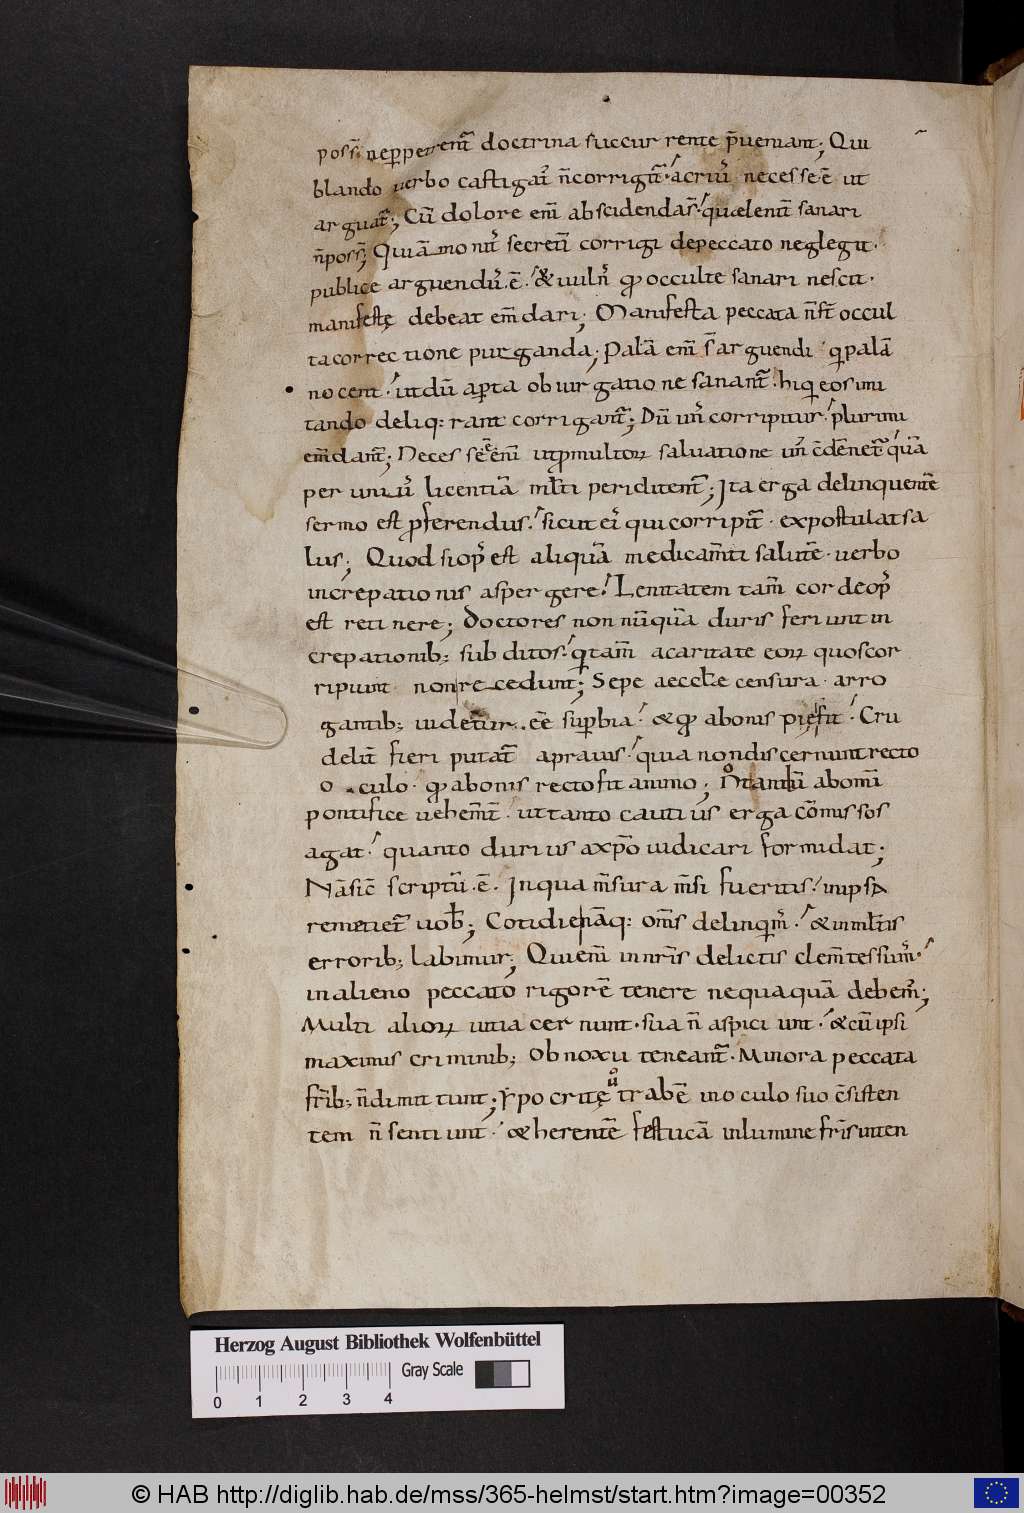 poss̄ neꝑpetrent̄ doctrina succur rente p̄ueniant; Qui
blando uerbo castigat᷒ n̄corrigit᷒ acriu᷒ necesse ē ut
arguat᷒; Cū dolore eni᷒ abscidendas̄ quęleniꞇ̄ sanari
n̄poss̄; Quiā monit᷒ secretī corrigi depeccato neglegit.
publice arguendu᷒ ē. & uuln᷒ qd̄ occulte sanari nescit.
manifestę debeat em̄dari; Manifesta peccata n̄st̄ occul
tacorrectione purganda; Palā eni᷒ s̄ arguendi q̇palā
nocent. utdū aꝑta obiurgatione sanant᷒. hiq̇ eosimi
tando deliq: rant corrigant᷒; Dū un᷒ corripitur. plurimi
em̄dant᷒; Necesse ē enī utꝓmultoꝝ saluatione un᷒ c̄dēnet᷒ quā
per uniu᷒ licentiā ml̄ti periditent᷒; Ita erga delinquentē
sermo est ꝓferendus. sicut ei᷒ qui corripit᷒. expostulat sa
lus; Quod si op᷒ est aliquā medicam̄ti salutē. uerbo
increpationis aspergere. Lenitatem tam̄ corde op᷒
est retinere; Doctores non nūquā duris feriunt in
crepationib; subditos. q̇ tam̄ a caritate eoꝝ quoscor
ripiunt non recedunt; Sepe aeccłe censura. arro
gantib; uidetur. eē suꝑbia. & qd̄ abonis pie fit. Cru
delit᷒ fieri putat᷒ a prauis. quia non discernunt recto
oculo. qd̄ abonis recto fit animo; abomī
pontifice uehem̄t᷒. ut tanto cautius erga cōmissos
agat. quanto durius axp̄o iudicari formidat;
Nā sic̄ scriptū. ē. Inqua m̄sura m̄si fueritis. inipsa
remetiet᷒ uob̄; Cotidie nāq: om̄s delinq̇m᷒. & inml̄tis
errorib; labimur; Qui enī in nr̄is delictis clem̄tes sum᷒.
in alieno peccato rigorē tenere nequaquā debem᷒;
Multi alioꝝ uitia cernunt. sua n̄ aspiciunt. & cū ipsi
maximis criminib; obnoxii teneant᷒. Minora peccata
fr̄ib; n̄dimittunt; Ypocritę trabē in oculo suo c̄sisten
tem n̄ sentiunt. & herentē festucā inlumine fr̄is inten
Herzog August Bibliothek Wolfenbüttel
Gray Scale
0 1 2 3 4
© HAB http://diglib.hab.de/mss/365-helmst/start.htm?image=00352